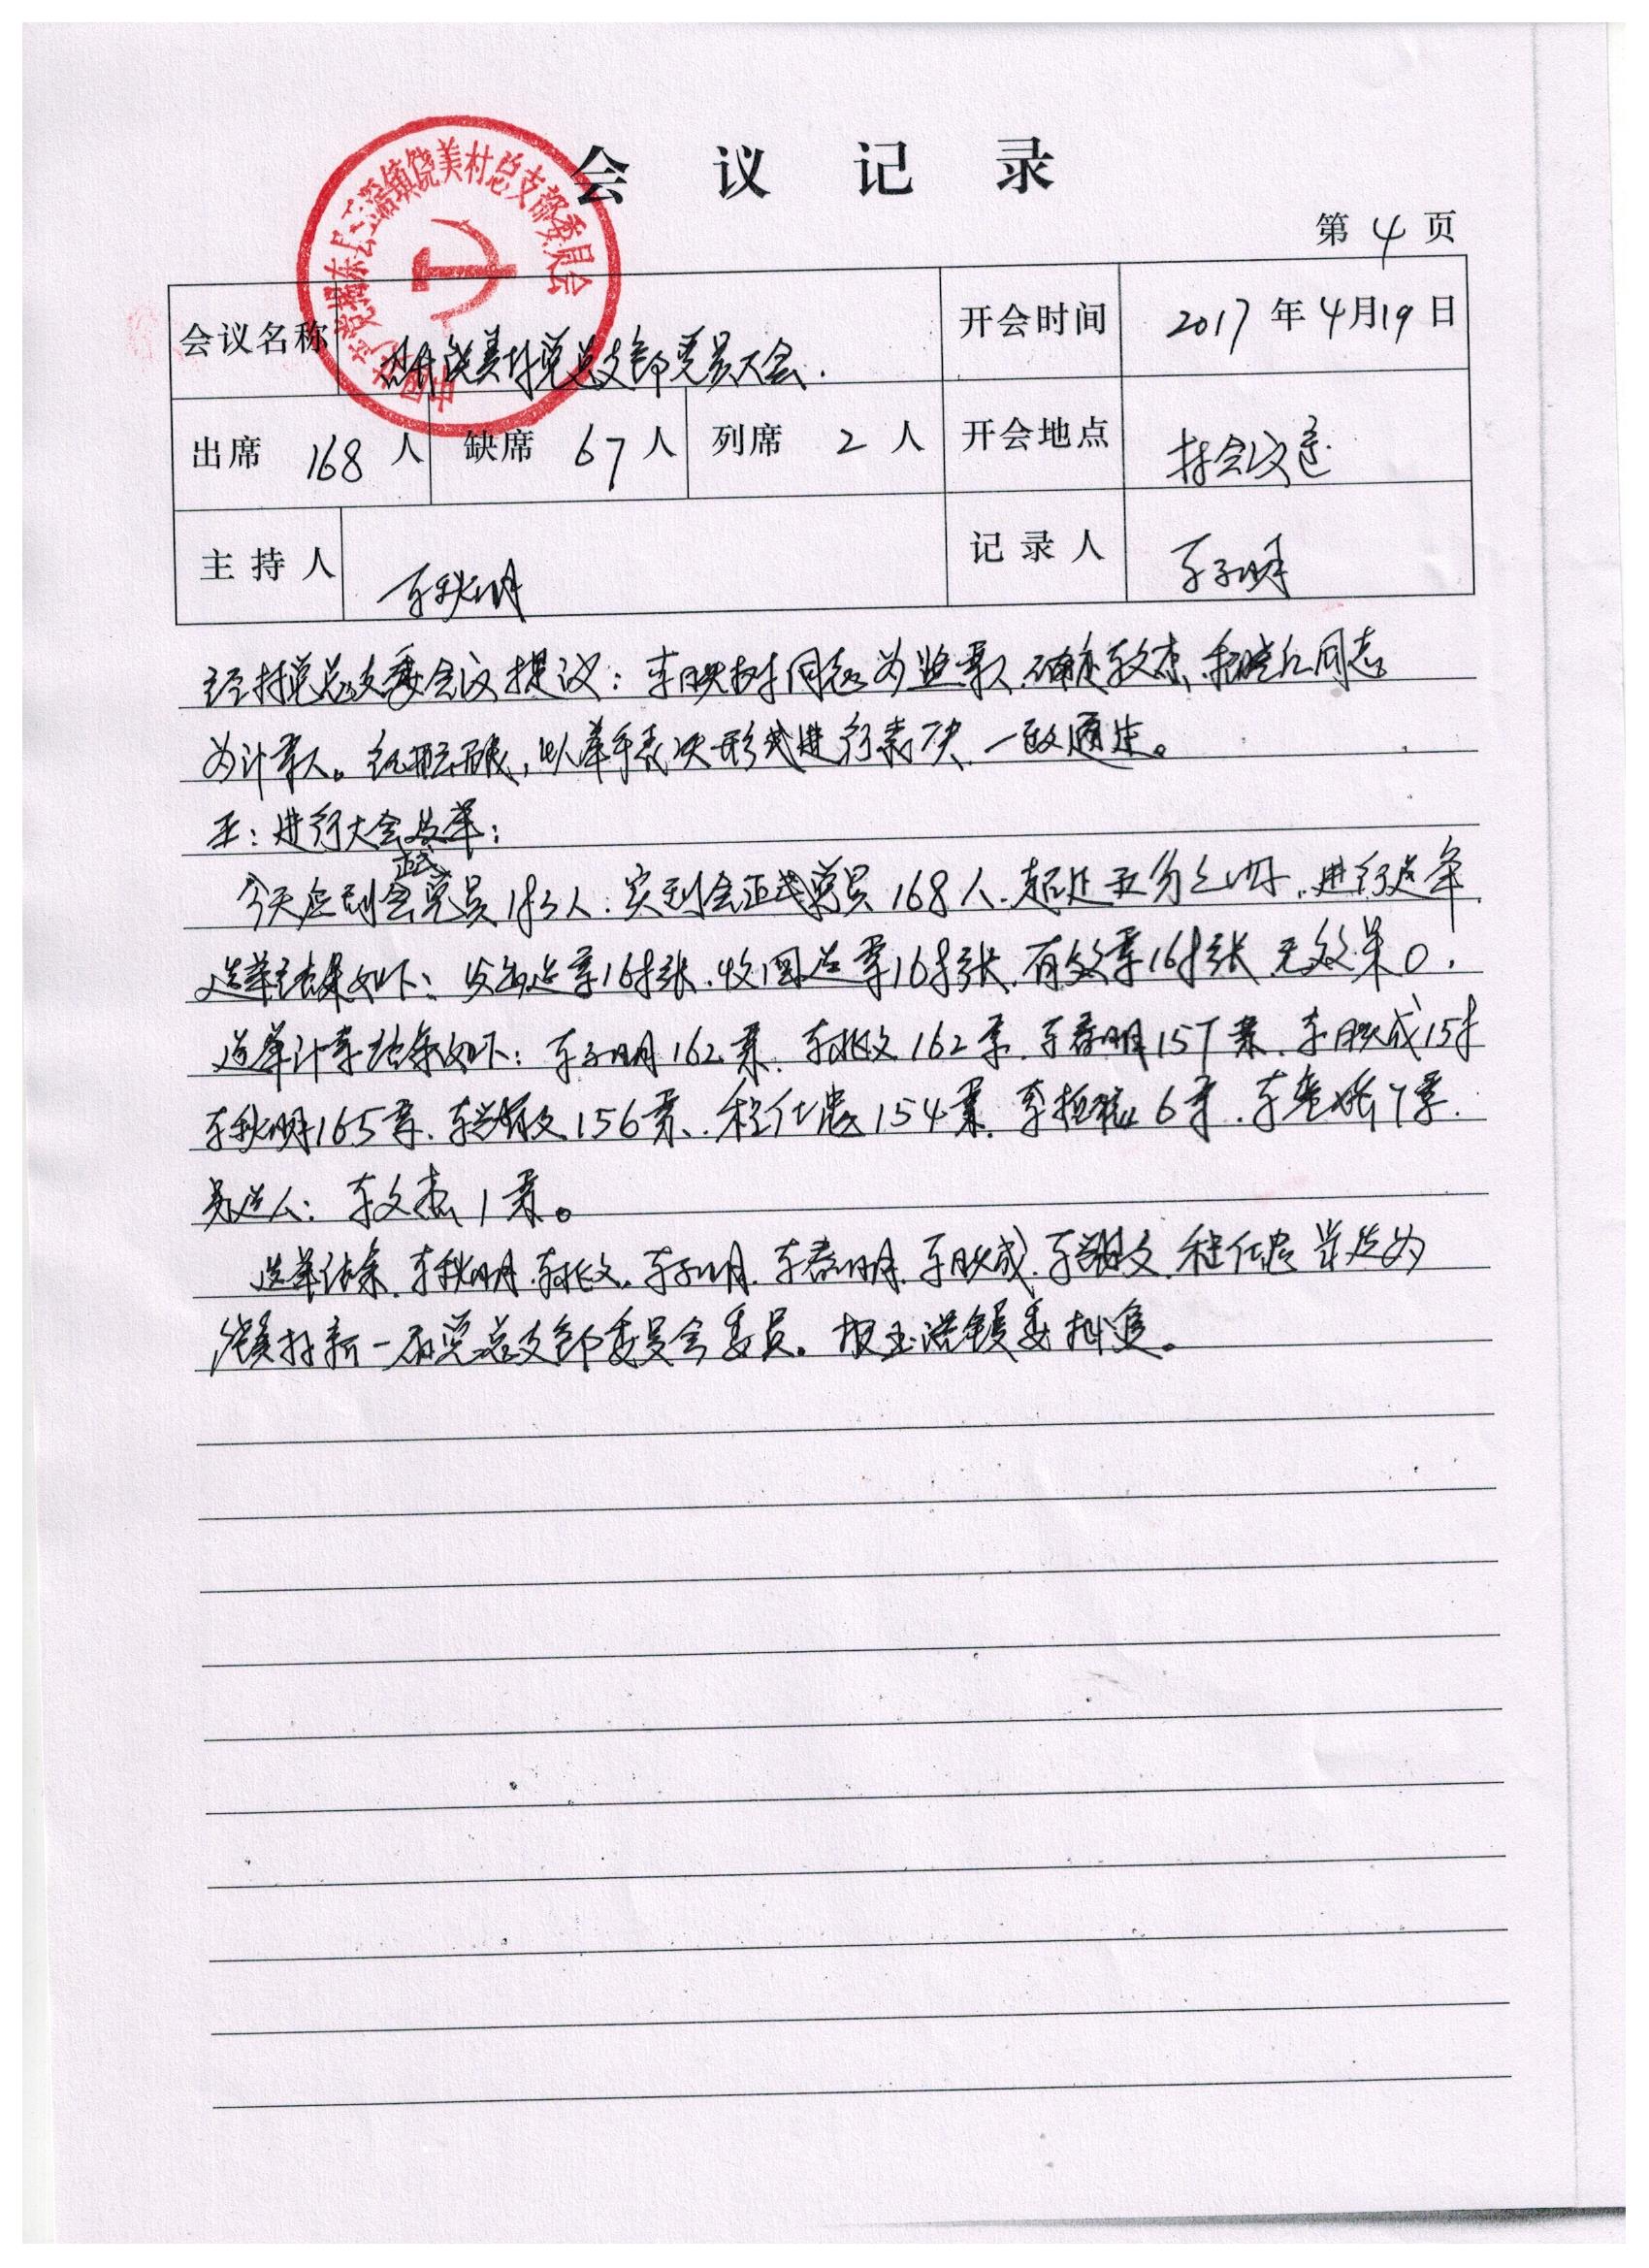 会议记录
第 4 页
中国共产党揭东县玉滘镇饶美村总支部委员会
会议名称 饶美村党总支部党员大会. 开会时间 2017 年 4 月 19 日
出席 168 人 缺席 67 人 列席 2 人 开会地点 村会议室
主持人 秋明 记录人 子明
经村党总支委会议提议: 映树同志为监票人. 确定文杰、同志
为计票人。以举手表决形式进行表决. 一致通过。
五: 进行大会选举:
今天应到会正式党员183人. 实到会正式党员168人. 超过五分之四. 进行选举.
选举结果如下: 发出选票168张. 收回选票168张. 有效票168张 无效票0.
选举计票结果如下: 子明162票. 162票. 春明157票. 映成158
秋明165票. 文156票. 程仕忠154票. 6票. 7票.
另选人: 文杰1票。
选举结果. 秋明. 子明. 春明. 映成. 文. 程仕忠 当选为
饶美村新一届党总支部委员会委员. 报玉滘镇委批复。